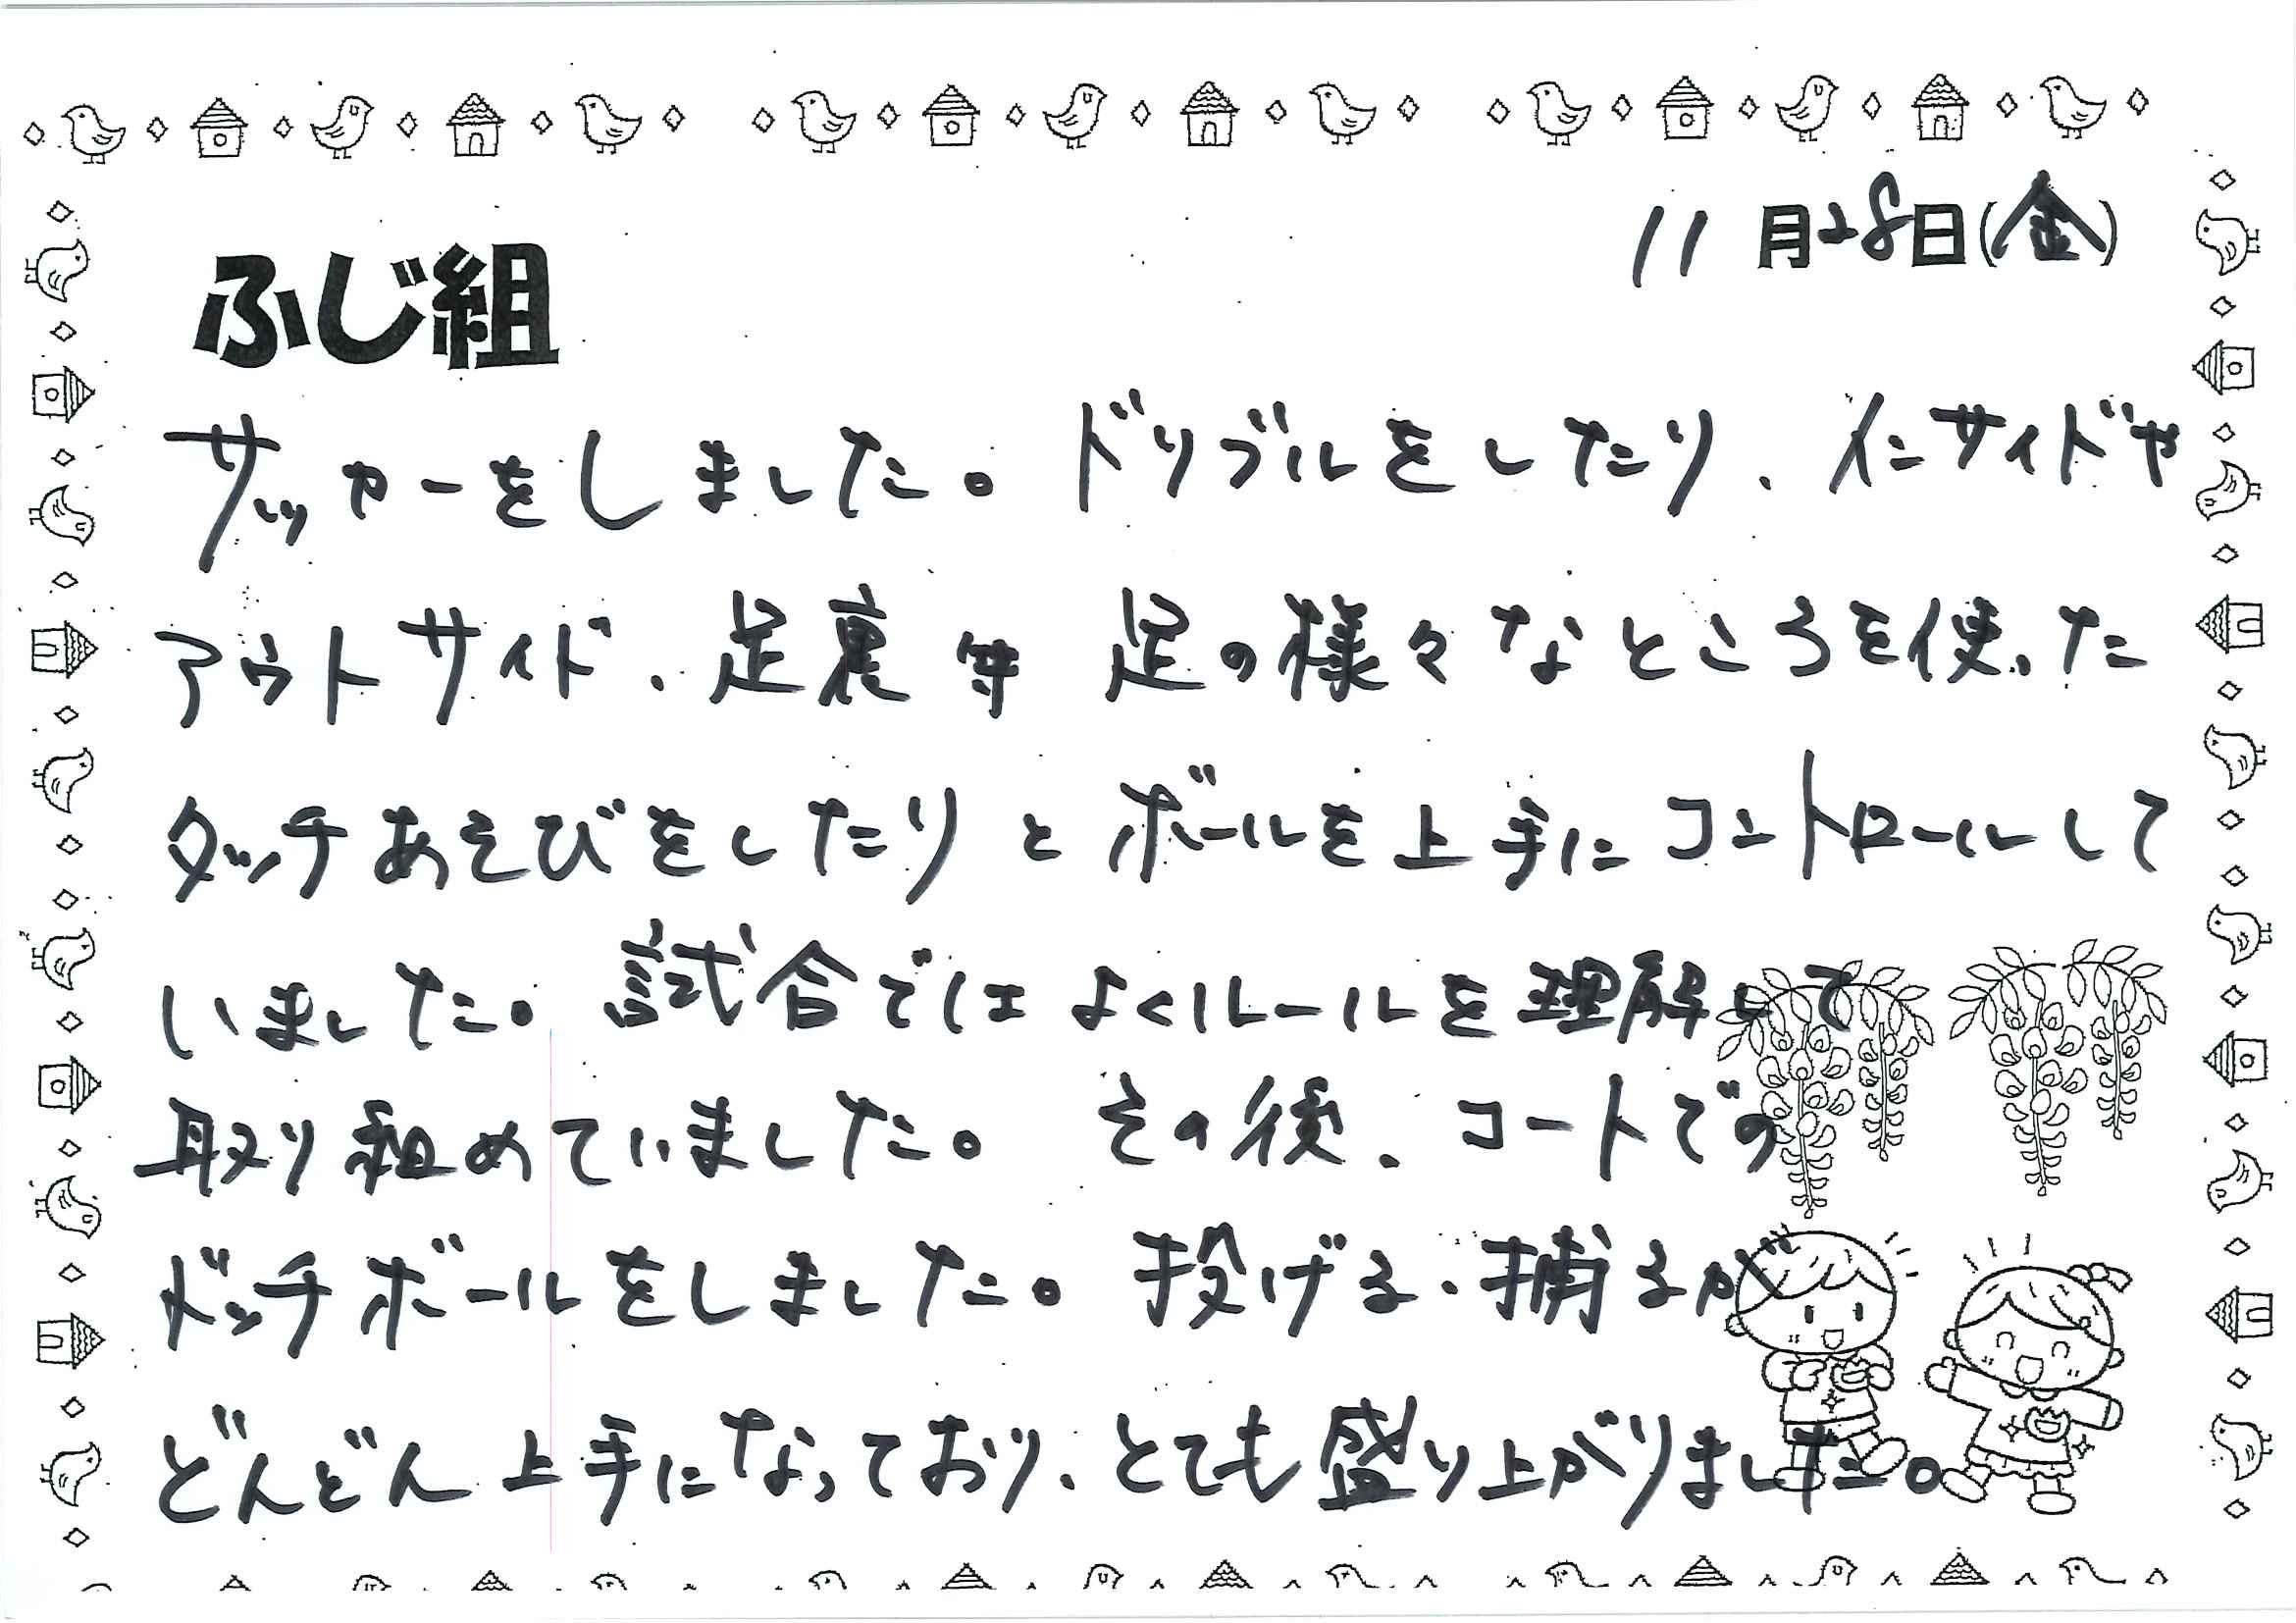 11月28日(金)
ふじ組
サッカーをしました。ドリブルをしたり、インサイドや
アウトサイド、足裏等 足の様々なところを使った
タッチあそびをしたりとボールを上手にコントロールして
いました。試合ではよくルールを理解して
取り組めていました。その後、コートでの
ドッチボールをしました。投げる・捕るが
どんどん上手になっており、とても盛り上がりました。